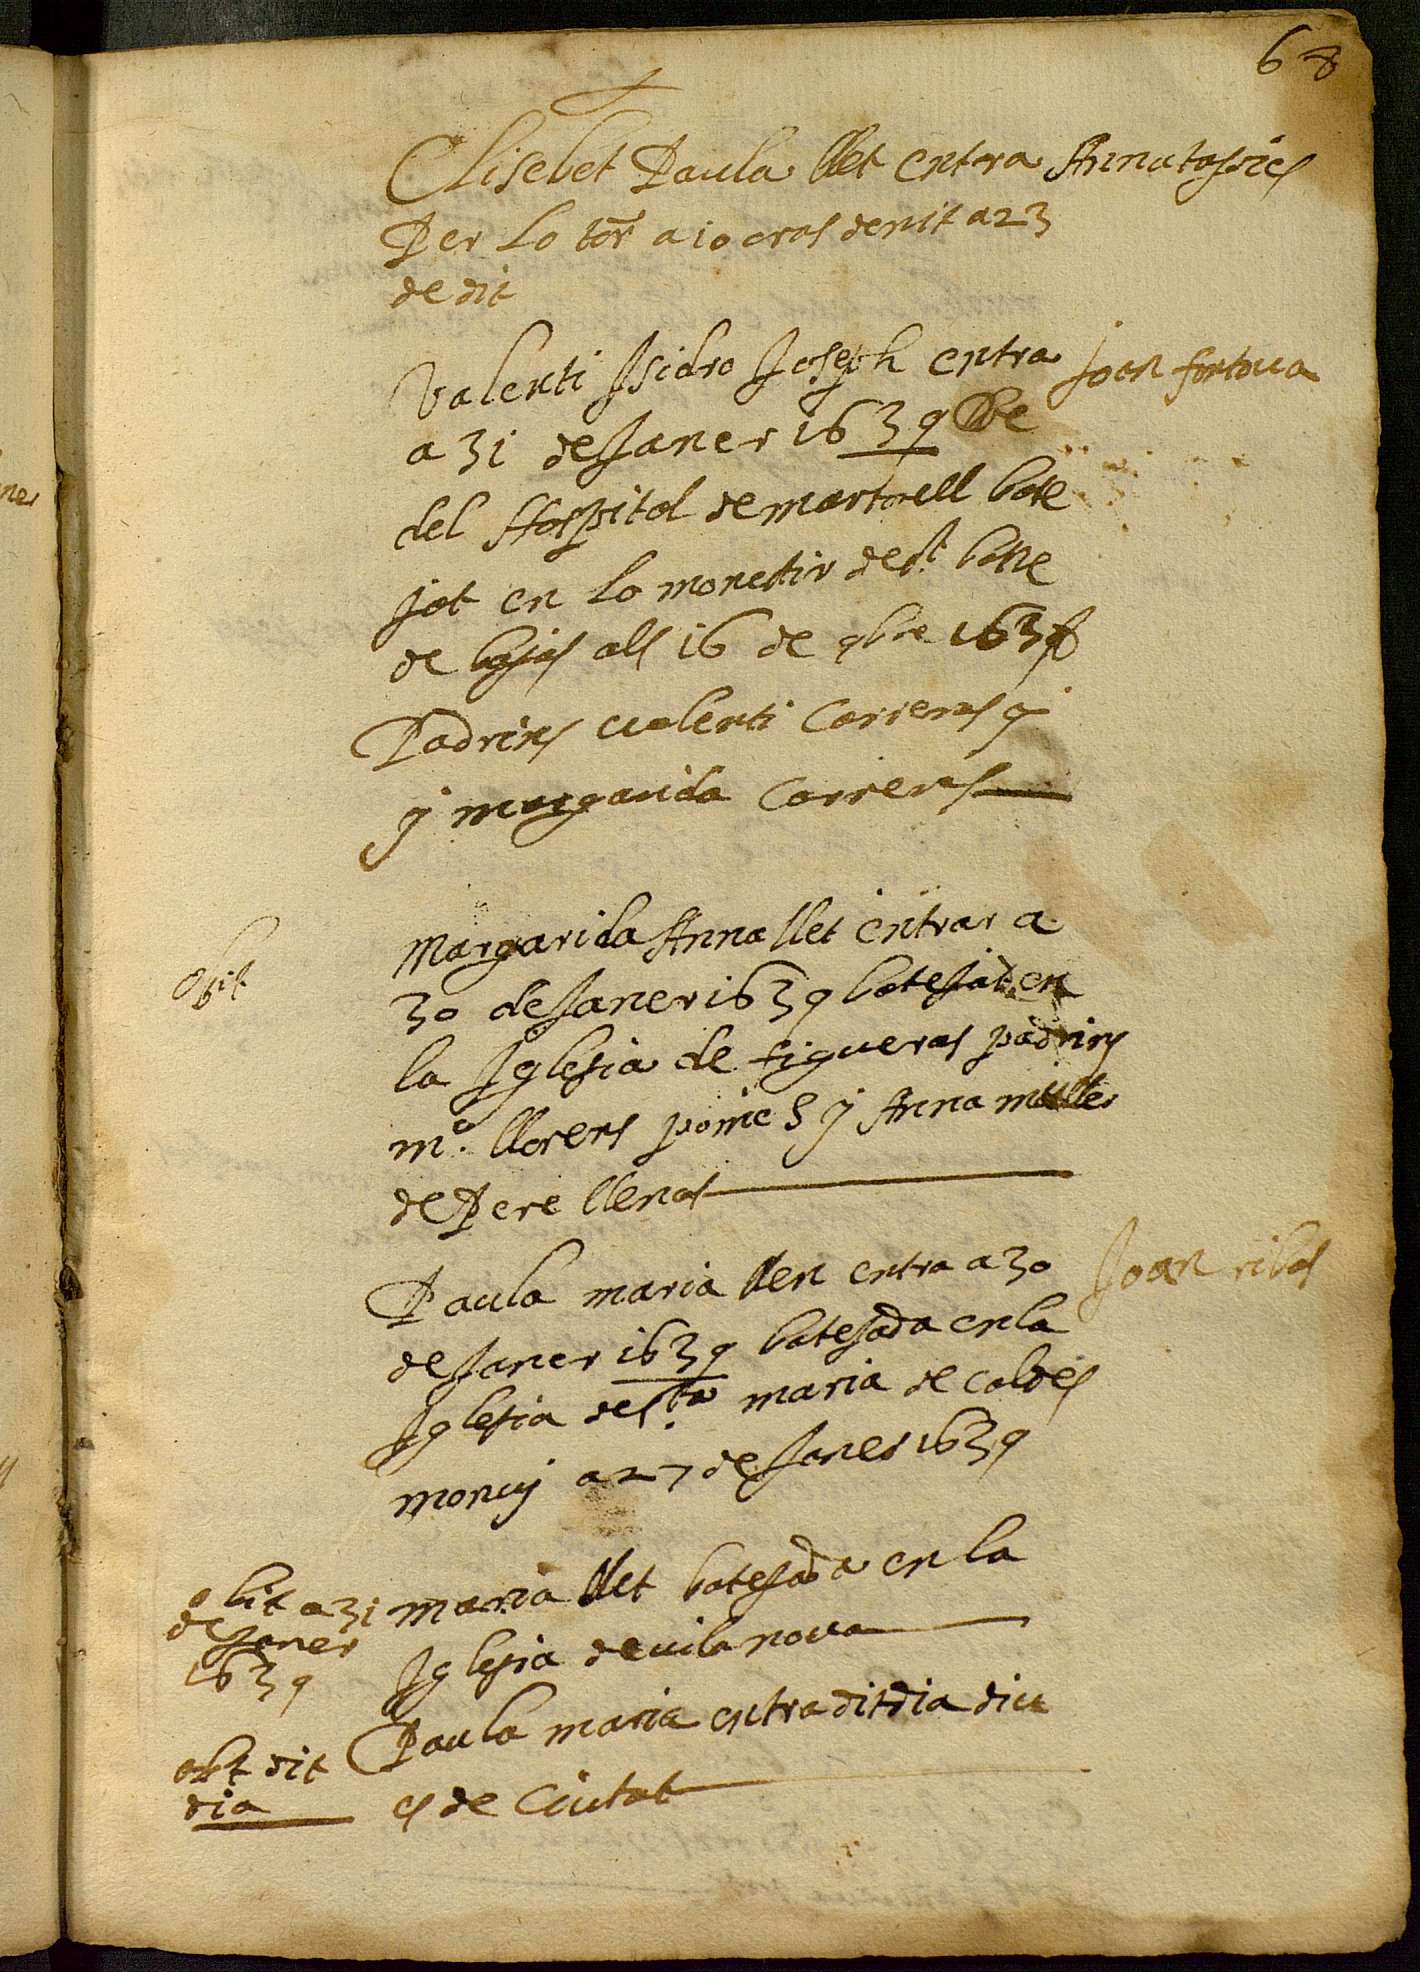 68
Elisebet Paula llet entra Anna tassies
Per lo tor a 10 oras de nit a 23
de dit
Valenti Isidro Joseph entra Joan fontova
a 31 de Janer 1639 Ve
del Hospital de martorell bate
jat en lo monestir de st. batle
de bajas als 16 de 9bre 1638
Padrins valenti Carreras y
y margarida Carreras
obit
Margarida Anna llet entrar a
30 de Janer 1639 batejad en
la Iglesia de figueras padrins
mo. llorens pome S y Anna muller
de Pere llenas
Paula maria llet entra a 30 Joan ribas
de Janer 1639 batejada en la
Iglesia de sta. maria de caldes
monuy a 27 de Janer 1639
obit a 31
de Janer
1639
maria llet batejada en la
Iglesia de vilanova
obit dit
dia
Paula maria entra dit dia diu
es de Ciutat